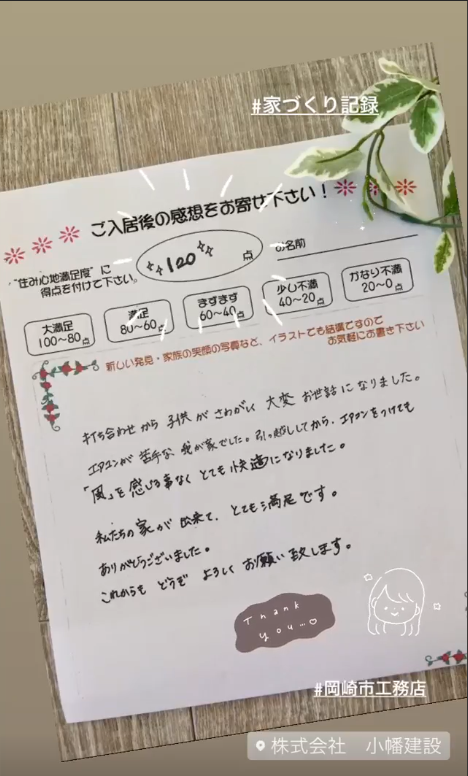 #家づくり記録
ご入居後の感想をお寄せ下さい！
"住み心地満足度"に
得点を付けて下さい。
120 点
お名前
大満足
100～80点
満足
80～60点
まずまず
60～40点
少し不満
40～20点
かなり不満
20～0点
新しい発見・家族の笑顔の写真など、イラストでも結構ですので
お気軽にお書き下さい
打ち合わせから子供がさわがしく大変お世話になりました。
エアコンが苦手な我が家でした。引っ越ししてから、エアコンをつけても
「風」を感じる事なくとても快適になりました。
私たちの家が出来て、とても満足です。
ありがとうございました。
これからもどうぞよろしくお願い致します。
Thank
you...
#岡崎市工務店
株式会社 小幡建設